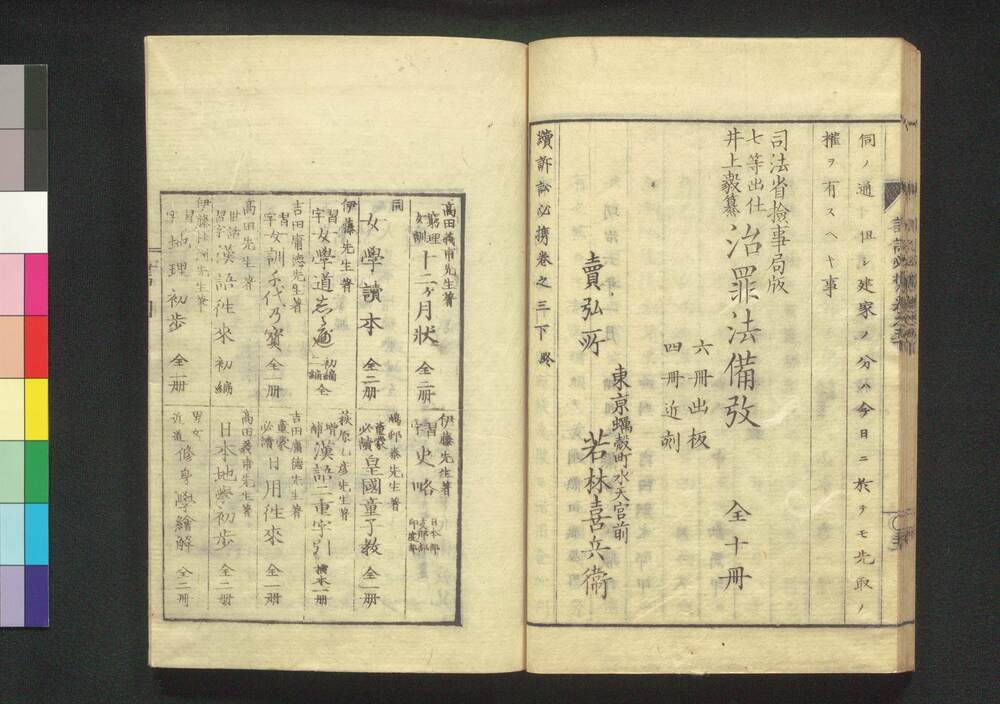 伺ノ通但シ建家ノ分ハ今日ニ於テモ先取ノ
権ヲ有スヘキ事
司法省検事局版
七等出仕
井上毅纂
治罪法備攷 全十冊
六冊出板
四冊近刻
東亰蠣殻町水天宮前
賣弘所 若林喜兵衛
續訴訟必携巻之三下終
高田義甫先生著
窮理
女訓
十二ケ月状 全二册
同
女學讀本 全二册
伊藤先生著
習
字
女學道志る遍 初編
二編
全
吉田庸徳先生著
習
字
女訓千代乃寶 全一册
高田先生著
世話
習字
漢語徃來 初編
伊藤桂洲先生著
習
字
地理初歩 全一册
伊藤先生著
習
字
史略
日本部
支那部
印度部
嶋邨泰先生著
童蒙
必讀
皇國童子教 全一册
萩原乙彦先生著
増
補
漢語二重字引 横本一册
吉田庸徳先生著
童蒙
必讀
日用徃來 全一册
高田義甫先生著
日本地學初歩 全二册
男女
近道
修身學繪解 全二册